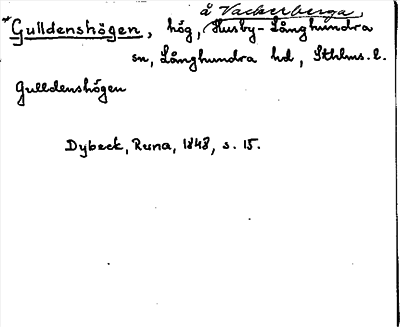 å Vackerberga,
*Gulldenshögen, hög, Husby-Långhundra
sn, Långhundra hd, Sthlms. l.
Gulldenshögen
Dybeck, Runa, 1848, s. 15.